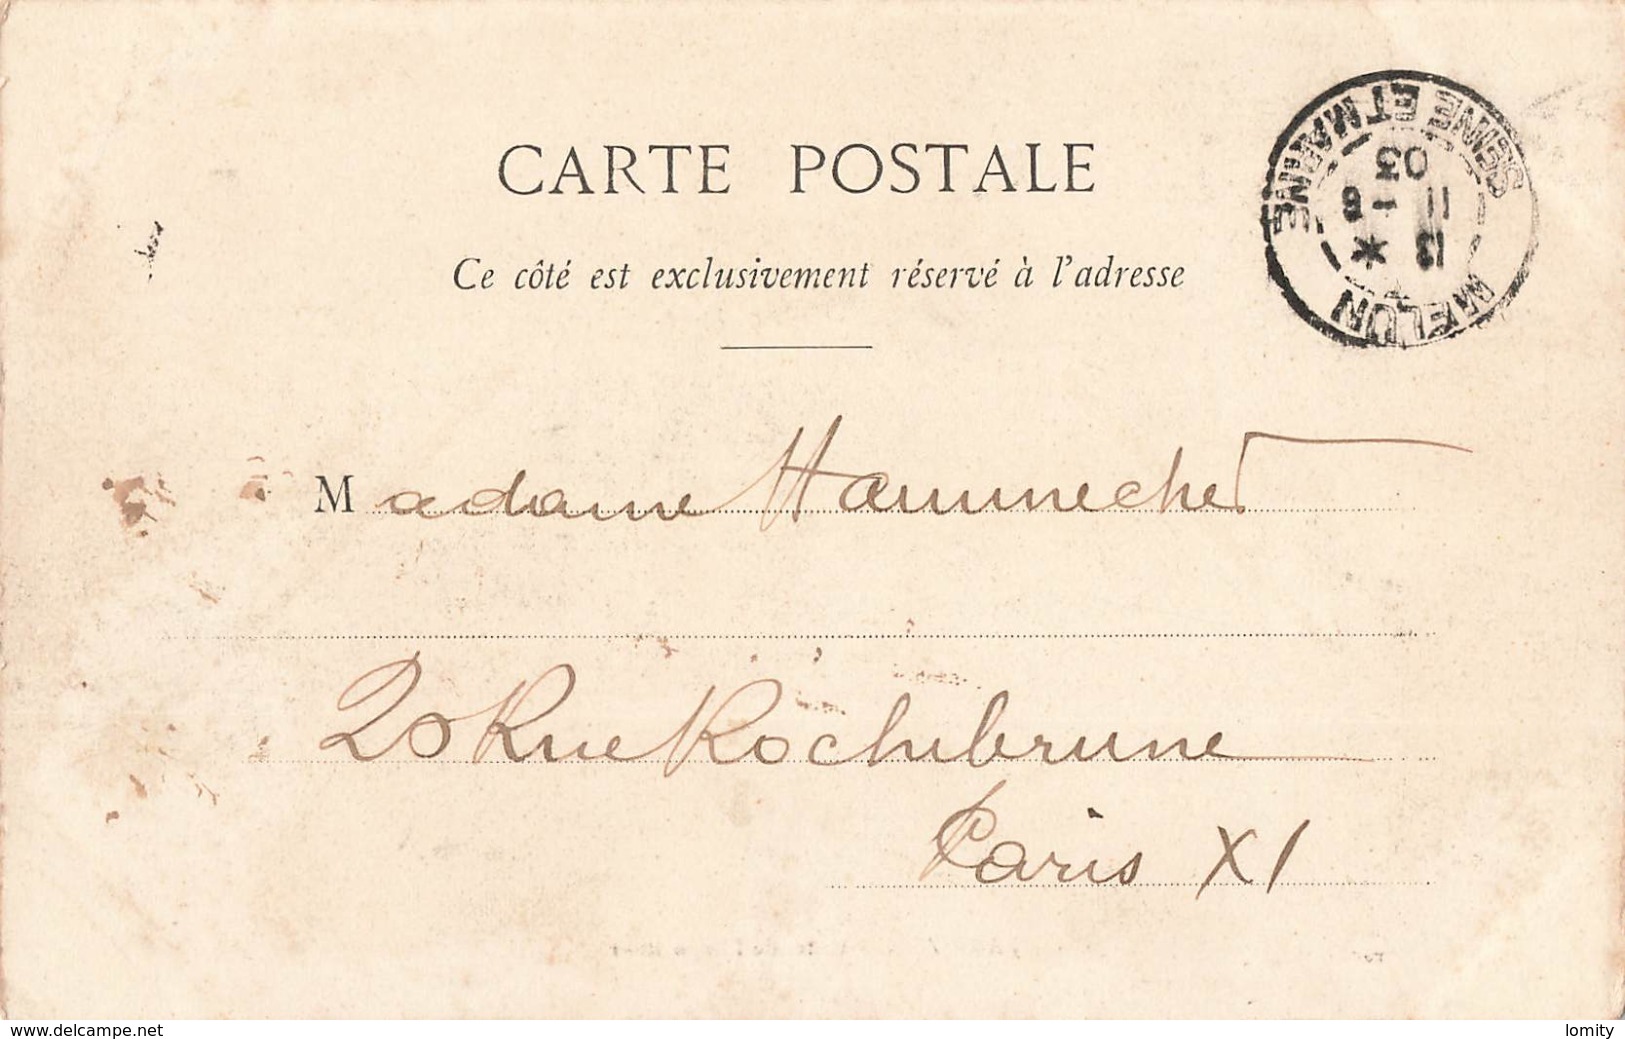 CARTE POSTALE
Ce côté est exclusivement réservé à l'adresse
MELUN
13 *
11 - 6
03
SEINE ET MARNE
Madame Hammechet
20 Rue Rochebrune
Paris XI
www.delcampe.net
lomity